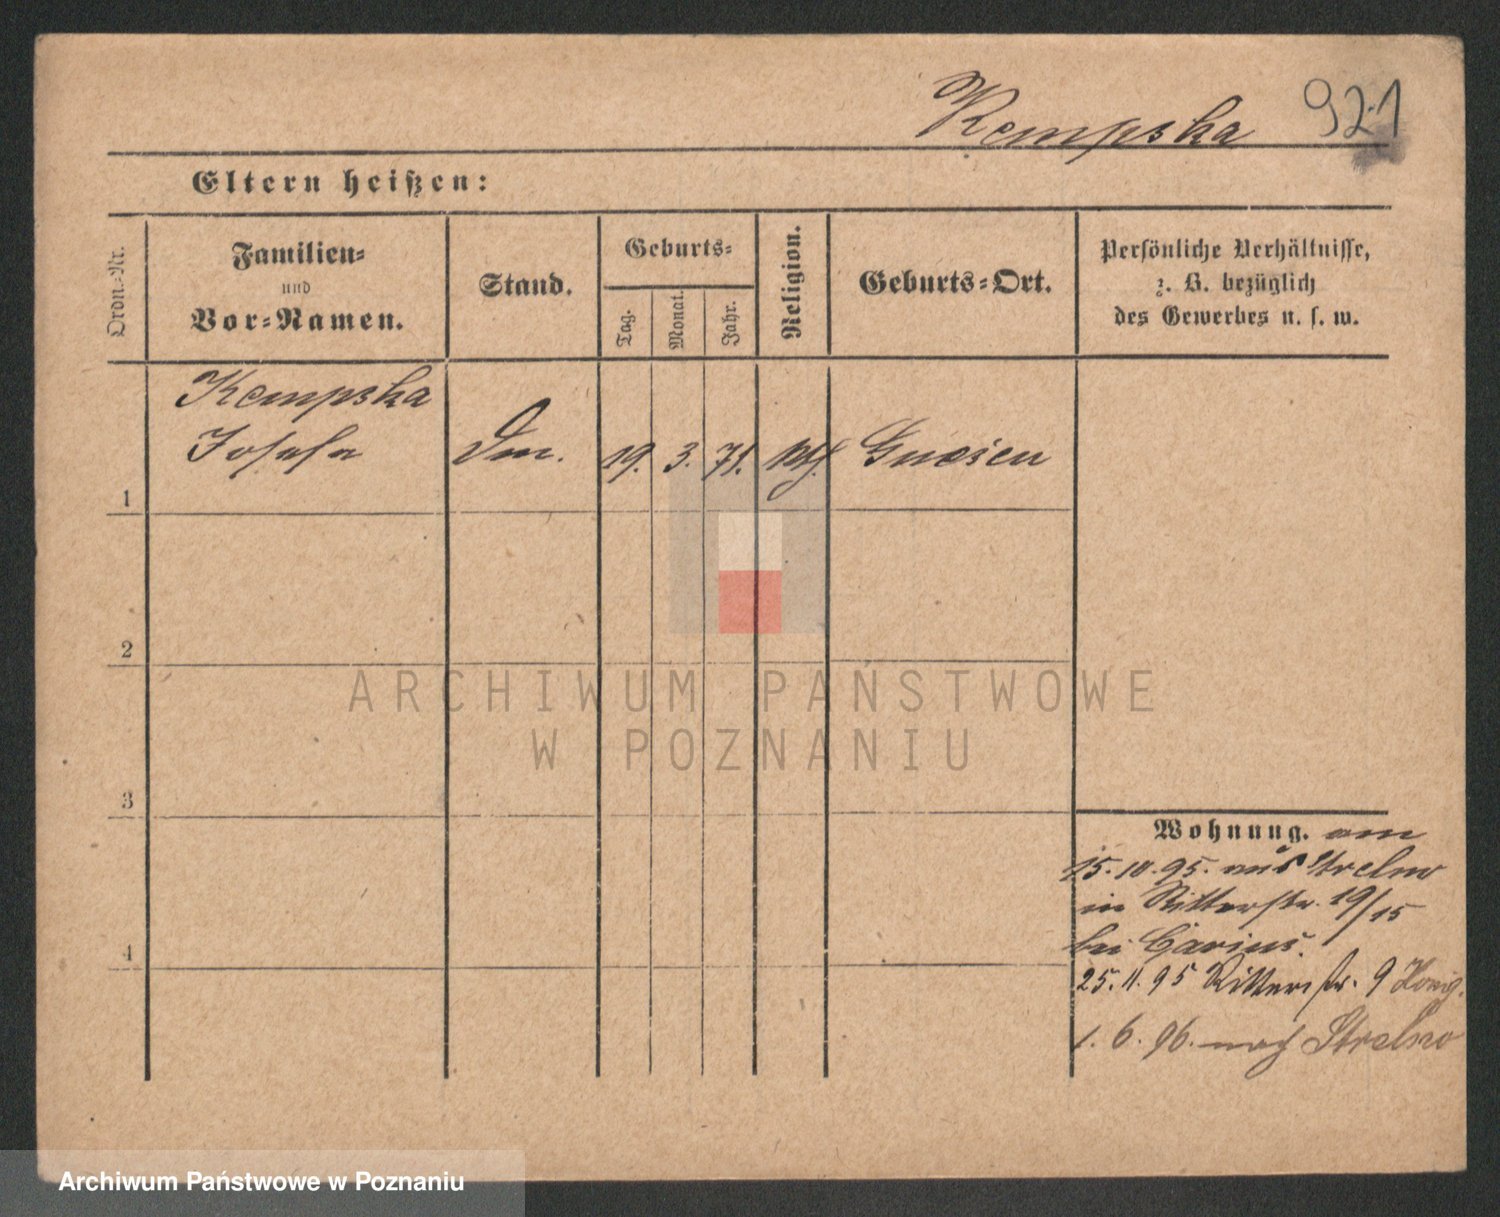 Kempska 921
Eltern heißen:
Ordn.-Nr.
Familien-
und
Vor-Namen.
Stand.
Geburts-
Tag.
Monat.
Jahr.
Religion.
Geburts-Ort.
Persönliche Verhältnisse,
z. B. bezüglich
des Gewerbes u. s. w.
Kempska
Josefa
19. 3. 71. Gnesen
1
2
3
4
ARCHIWUM PAŃSTWOWE
W POZNANIU
Wohnung. am
15.10.95. aus Strelno
in Ritterstr. 19/15
bei
25.11.95 Ritterstr. 9
1.6.96. nach Strelno
Archiwum Państwowe w Poznaniu